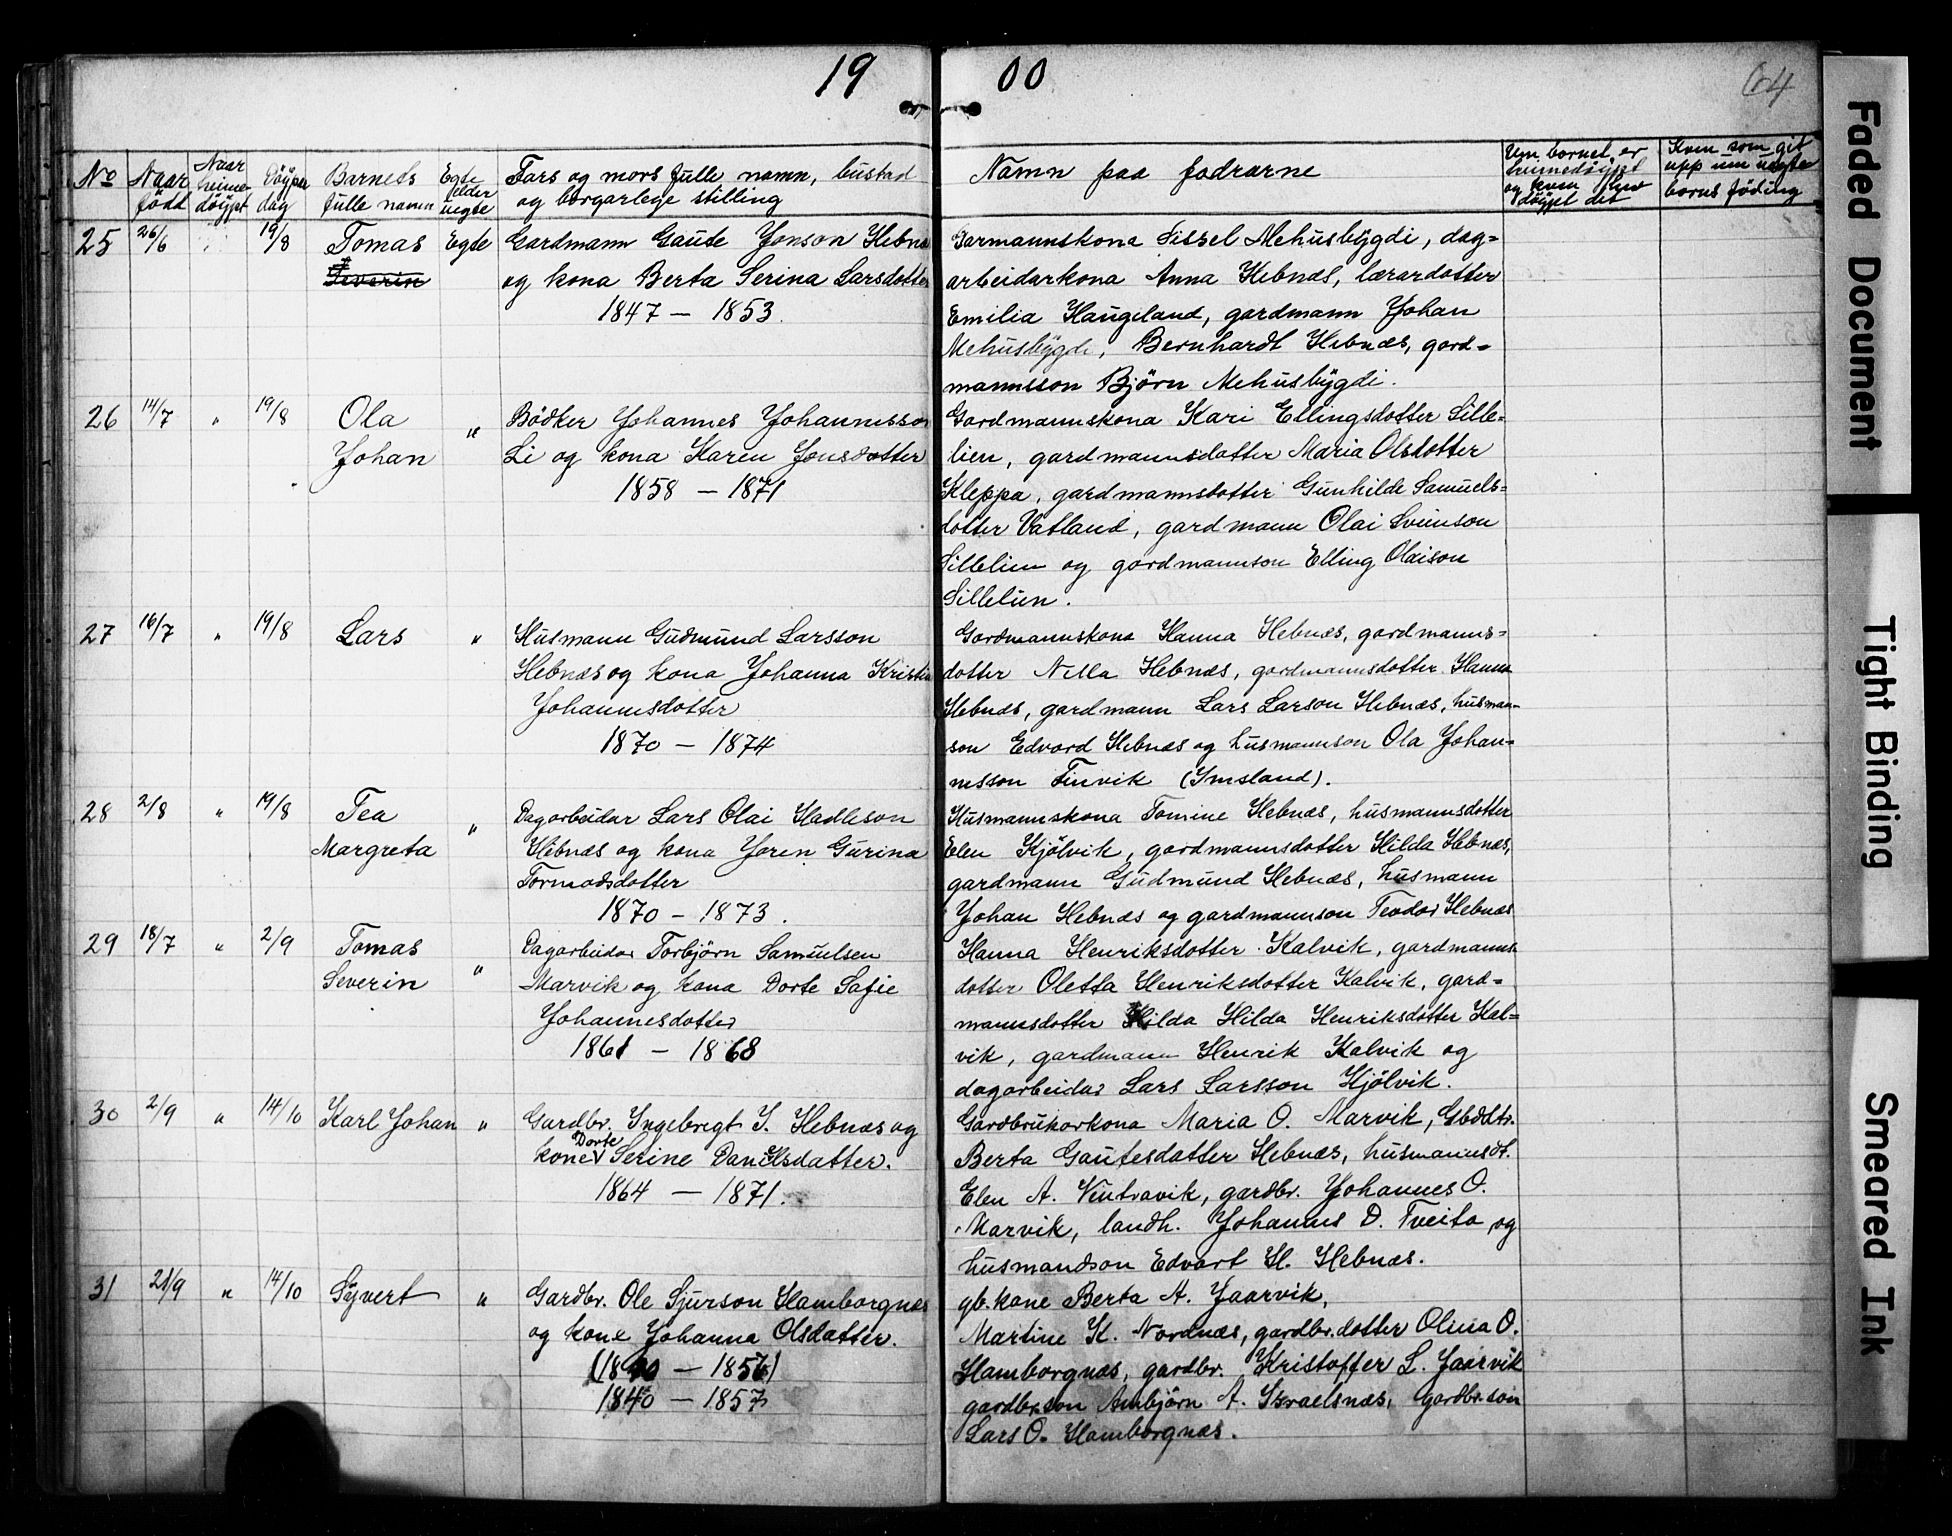 19 00
64
No
Naar född
Naar heime-döypt
Döype dag
Barnets fulle namn
Egte elder uegte
Fars og mors fulle namn, bustad og borgarlege stilling
Namn paa fadrarne
Um barnet er heimedöypt og kven hev döypt det
Kven som git upp um uegte borns föding
25 26/6 19/8 Tomas Egte Gardmann Gaute Jonson Hebnæs
Severin og kona Berta Serina Larsdotter
1847 — 1853.
Garmannskona Sissel Mehusbygdi, dag=
arbeidarkona Anna Hebnæs, lærardotter
Emilia Haugeland, gardmann Johan
Mehusbygdi, Bernhardt Hebnæs, gard=
mannsson Björn Mehusbygdi.
26 14/7 " 19/8 Ola " Bödker Johannes Johannesson
Johan Li og kona Karen Jonsdotter
1858 — 1871
Gardmannskona Kari Ellingsdotter Lille=
lien, gardmannsdotter Maria Olsdotter
Kleppa, gardmannsdotter Gunhilde Samuels=
dotter Vatland, gardmann Olai Sveinson
Lillelien og gardmannson Elling Olaison
Lillelien.
27 16/7 " 19/8 Lars " Husmann Gudmund Larsson
Hebnæs og kona Johanna Kristin
Johannesdotter
1870 — 1874
Gardmannskona Hanna Hebnæs, gardmanns=
dotter Nella Hebnæs, gardmannsdotter Hanna
Hebnæs, gardmann Lars Larson Hebnæs, husman-
son Edvard Hebnæs og husmannson Ola Johan=
nesson Tinvik (Imsland).
28 2/8 " 19/8 Tea " Dagarbeidar Lars Olai Hadleson
Margreta Hebnæs og kona Joren Gurina
Tormodsdotter
1870 — 1873.
Husmannskona Tomine Hebnæs, husmannsdotter
Elen Kjölvik, gardmannsdotter Hilda Hebnæs,
gardmann Gudmund Hebnæs, husmann
Johan Hebnæs og gardmannson Teodor Hebnæs
29 18/7 " 2/9 Tomas " Dagarbeidar Torbjörn Samuelsen
Severin Marvik og kona Dorte Safie
Johannesdotter
1861 — 1868
Hanna Henriksdotter Kalvik, gardmanns
dotter Oletta Henriksdotter Kalvik, gard=
mannsdotter Hilda Hilda Henriksdotter Kal=
vik, gardmann Henrik Kalvik og
dagarbeidar Lars Larsson Kjölvik.
30 2/9 " 14/10 Karl Johan " Gardbr. Ingebregt I. Hebnæs og
kone Dorte Serine Danielsdatter.
1864 — 1871.
Gardbrukarkona Maria O. Marvik, Gbdtr.
Berta Gautesdatter Hebnæs, husmannsdt.
Elen A. Vintravik, gardbr. Johannes O.
Marvik, landh. Johannes D. Tveita, og
husmandson Edvart H. Hebnæs.
31 21/9 " 14/10 Syvert " Gardbr. Ole Sjurson Hamborgnæs
og kone Johanna Olsdatter.
(1840 — 1857)
1840 — 1857
gb.kone Berta A. Jaarvik,
Martine K. Nordnæs, gardbr.dotter Olina O.
Hamborgnæs, gardbr. Kristoffer L. Jaarvik
gardbr.son Anbjörn A. Israelsnæs, gardbr.son
Lars O. Hamborgnæs.
Faded Document
Tight Binding
Smeared Ink